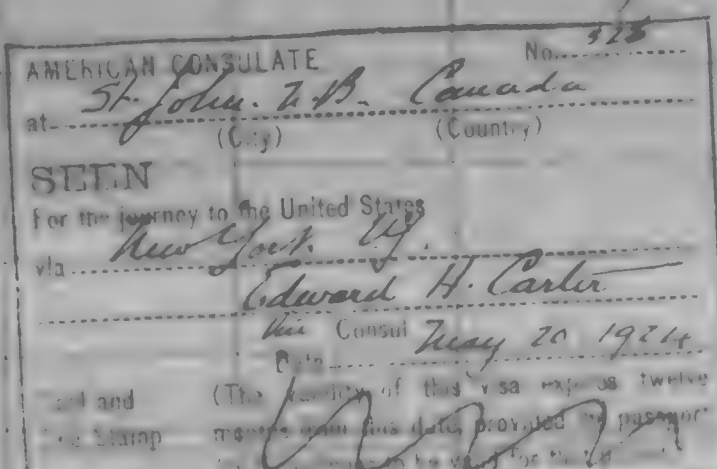 AMERICAN CONSULATE No. 328
at St. John. N.B. Canada
(City) (Country)
SEEN
For the journey to the United States
via New York
Edward H. Carter
Consul May 20 1924
Date
and (The validity of this visa expires twelve
Stamp months from this date, provided passport
to be valid for